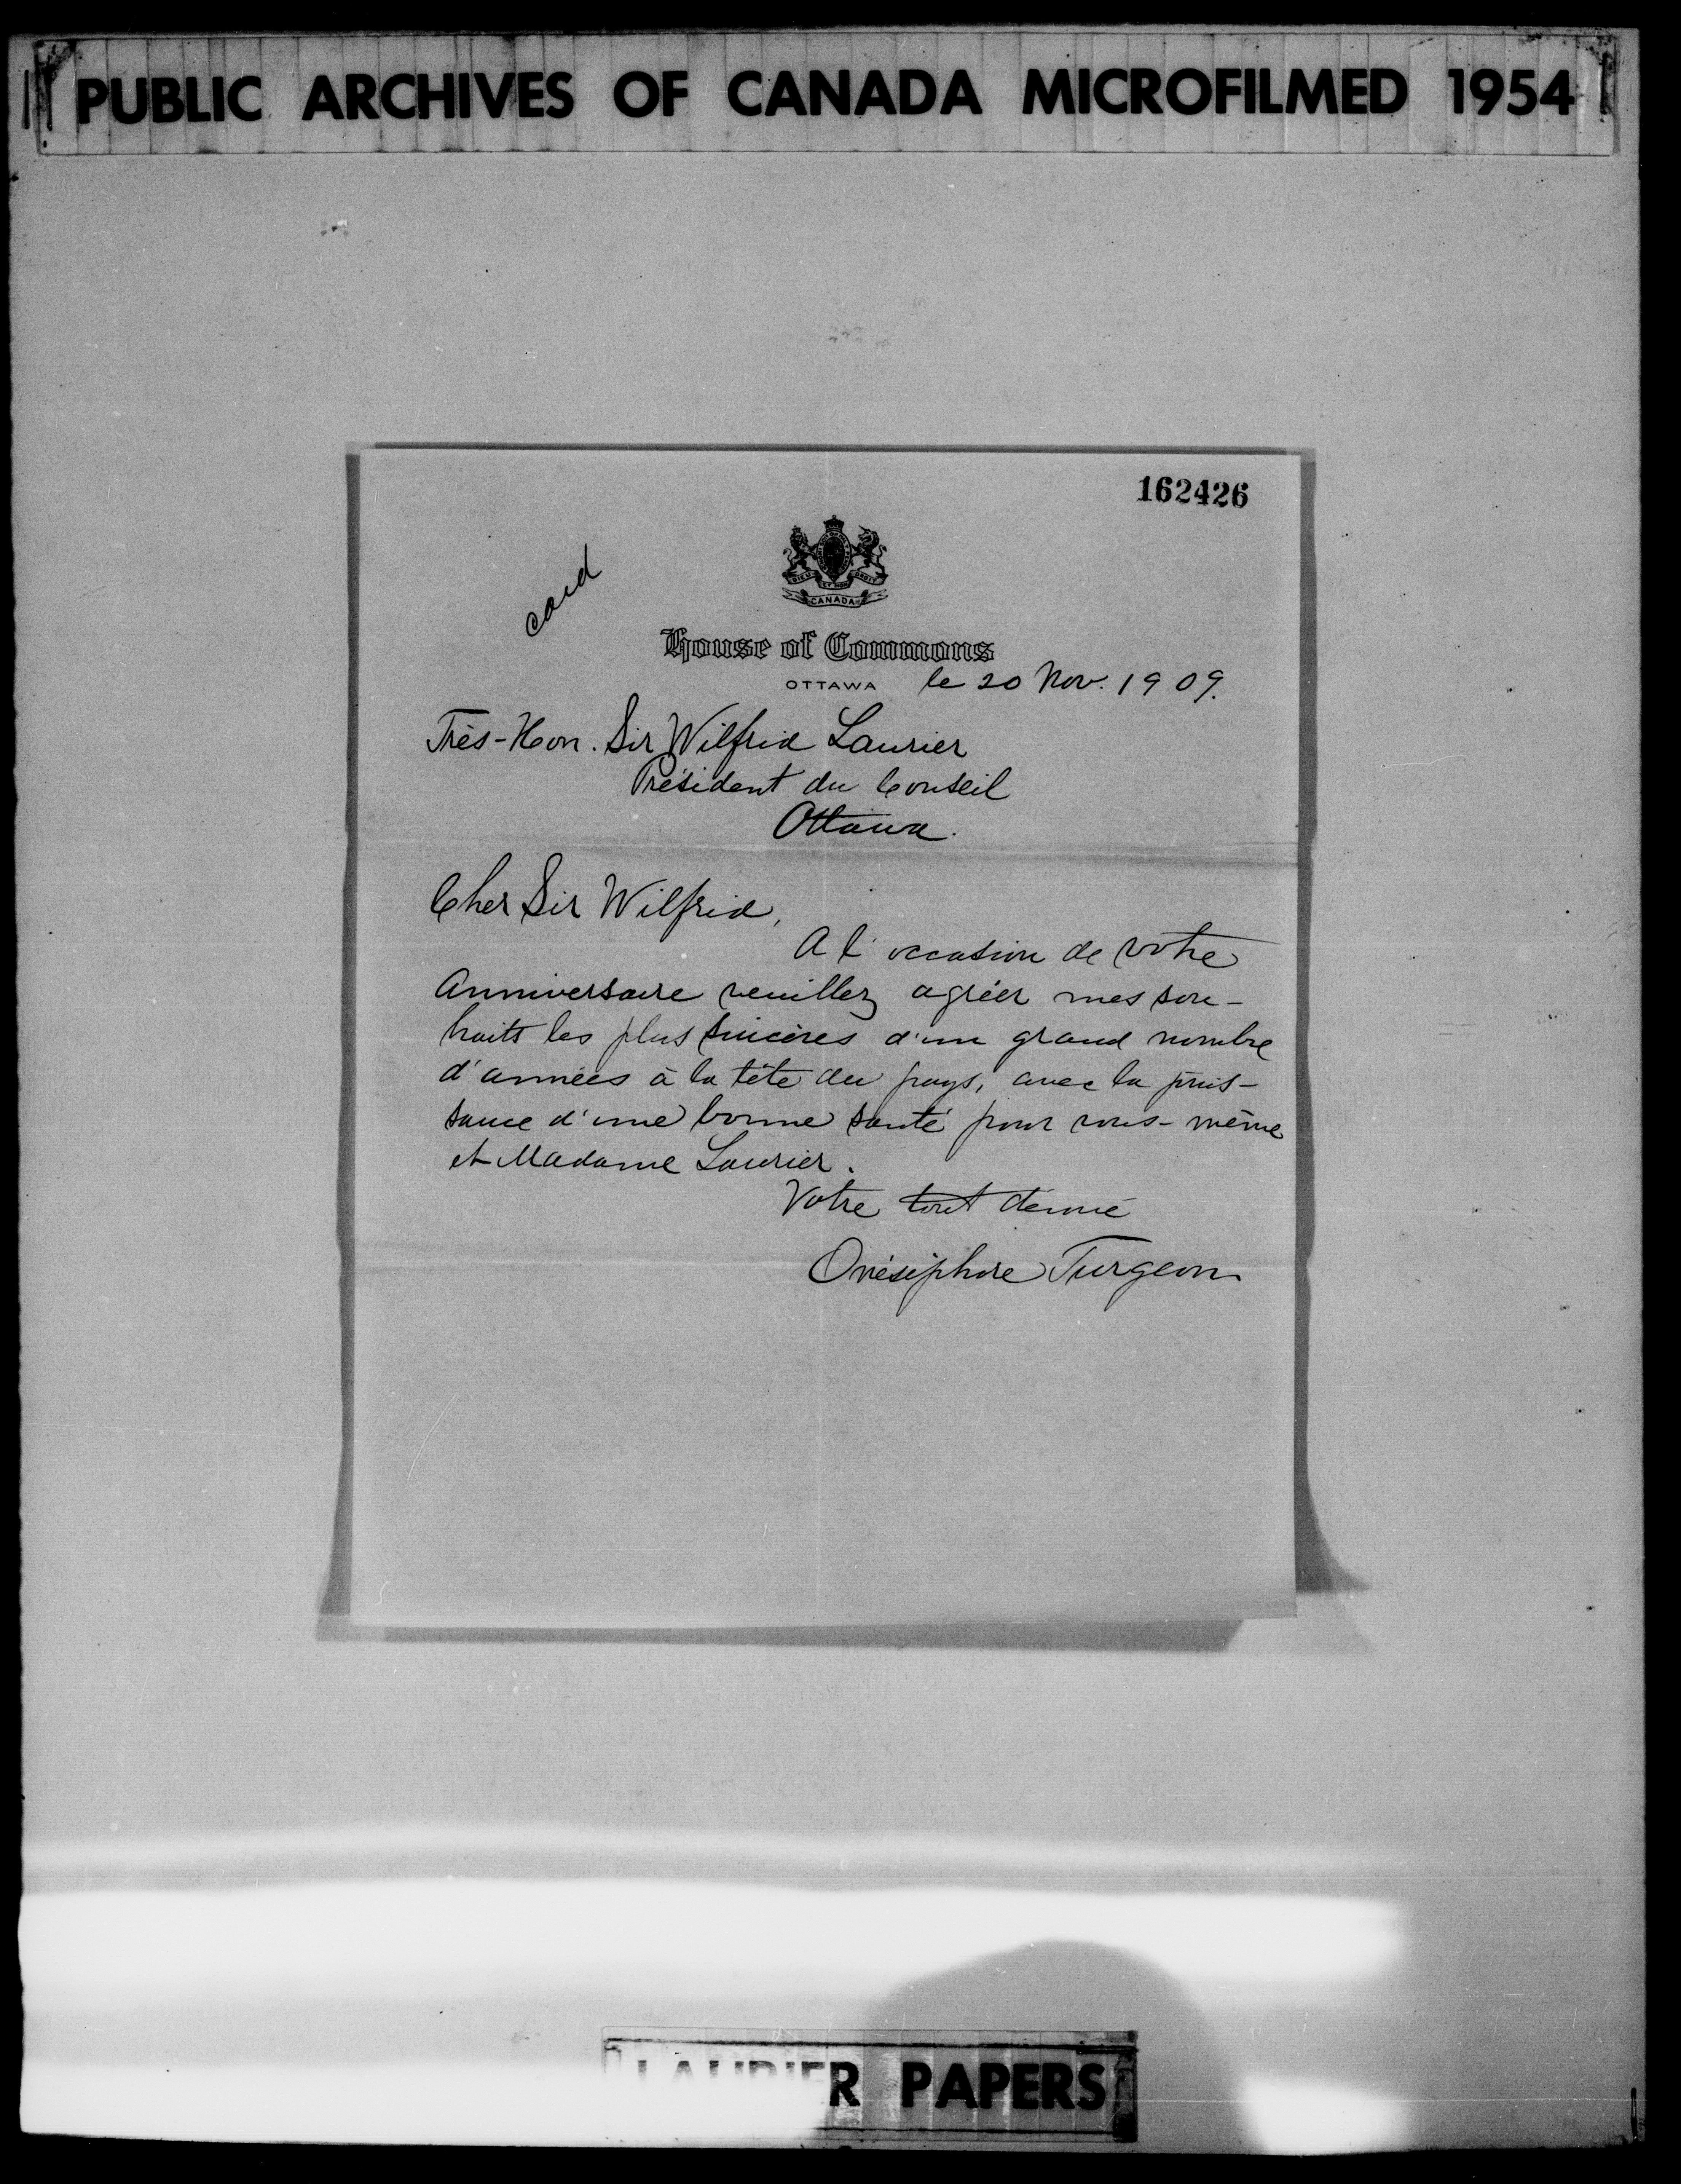 PUBLIC ARCHIVES OF CANADA MICROFILMED 1954
162426
card
DIEU ET MON DROIT
CANADA
House of Commons
OTTAWA le 20 Nov. 1909.
Très-Hon. Sir Wilfrid Laurier
Président du Conseil
Ottawa.
Cher Sir Wilfrid,
A l'occasion de votre
Anniversaire veuillez agréer mes sou-
haits les plus sincères d'un grand nombre
d'années à la tête du pays, avec la jouis-
sance d'une bonne santé pour vous-même
et Madame Laurier.
Votre tout dévoué
Onésiphore Turgeon
LAURIER PAPERS